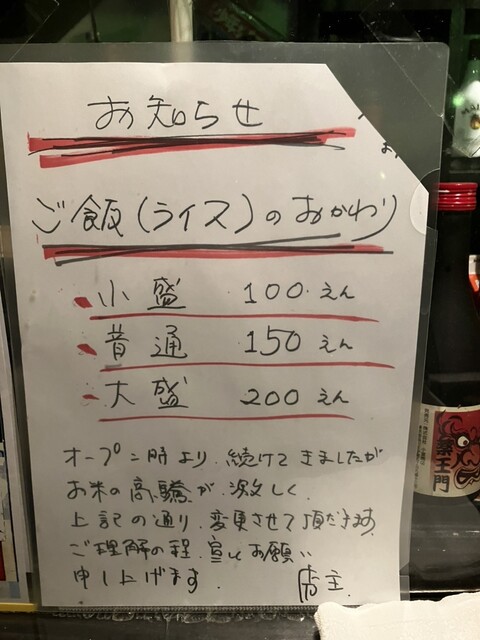 お知らせ
ご飯(ライス)のおかわり
小盛 100えん
普通 150えん
大盛 200えん
オープン時より、続けてきましたが
お米の高騰が、激しく、
上記の通り、変更させて頂だきます。
ご理解の程、宜しくお願い
申し上げます。 店主.
祭王門